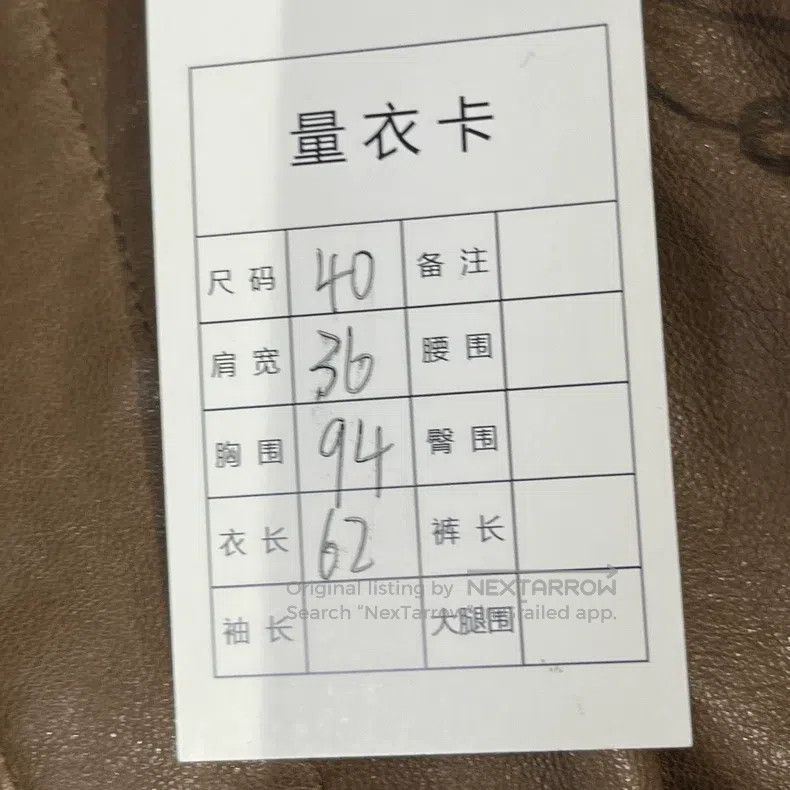 量衣卡
尺码 40 备注
肩宽 36 腰围
胸围 94 臀围
衣长 62 裤长
袖长 大腿围
Original listing by NEXTARROW
Search "NexTarrow" failed app.